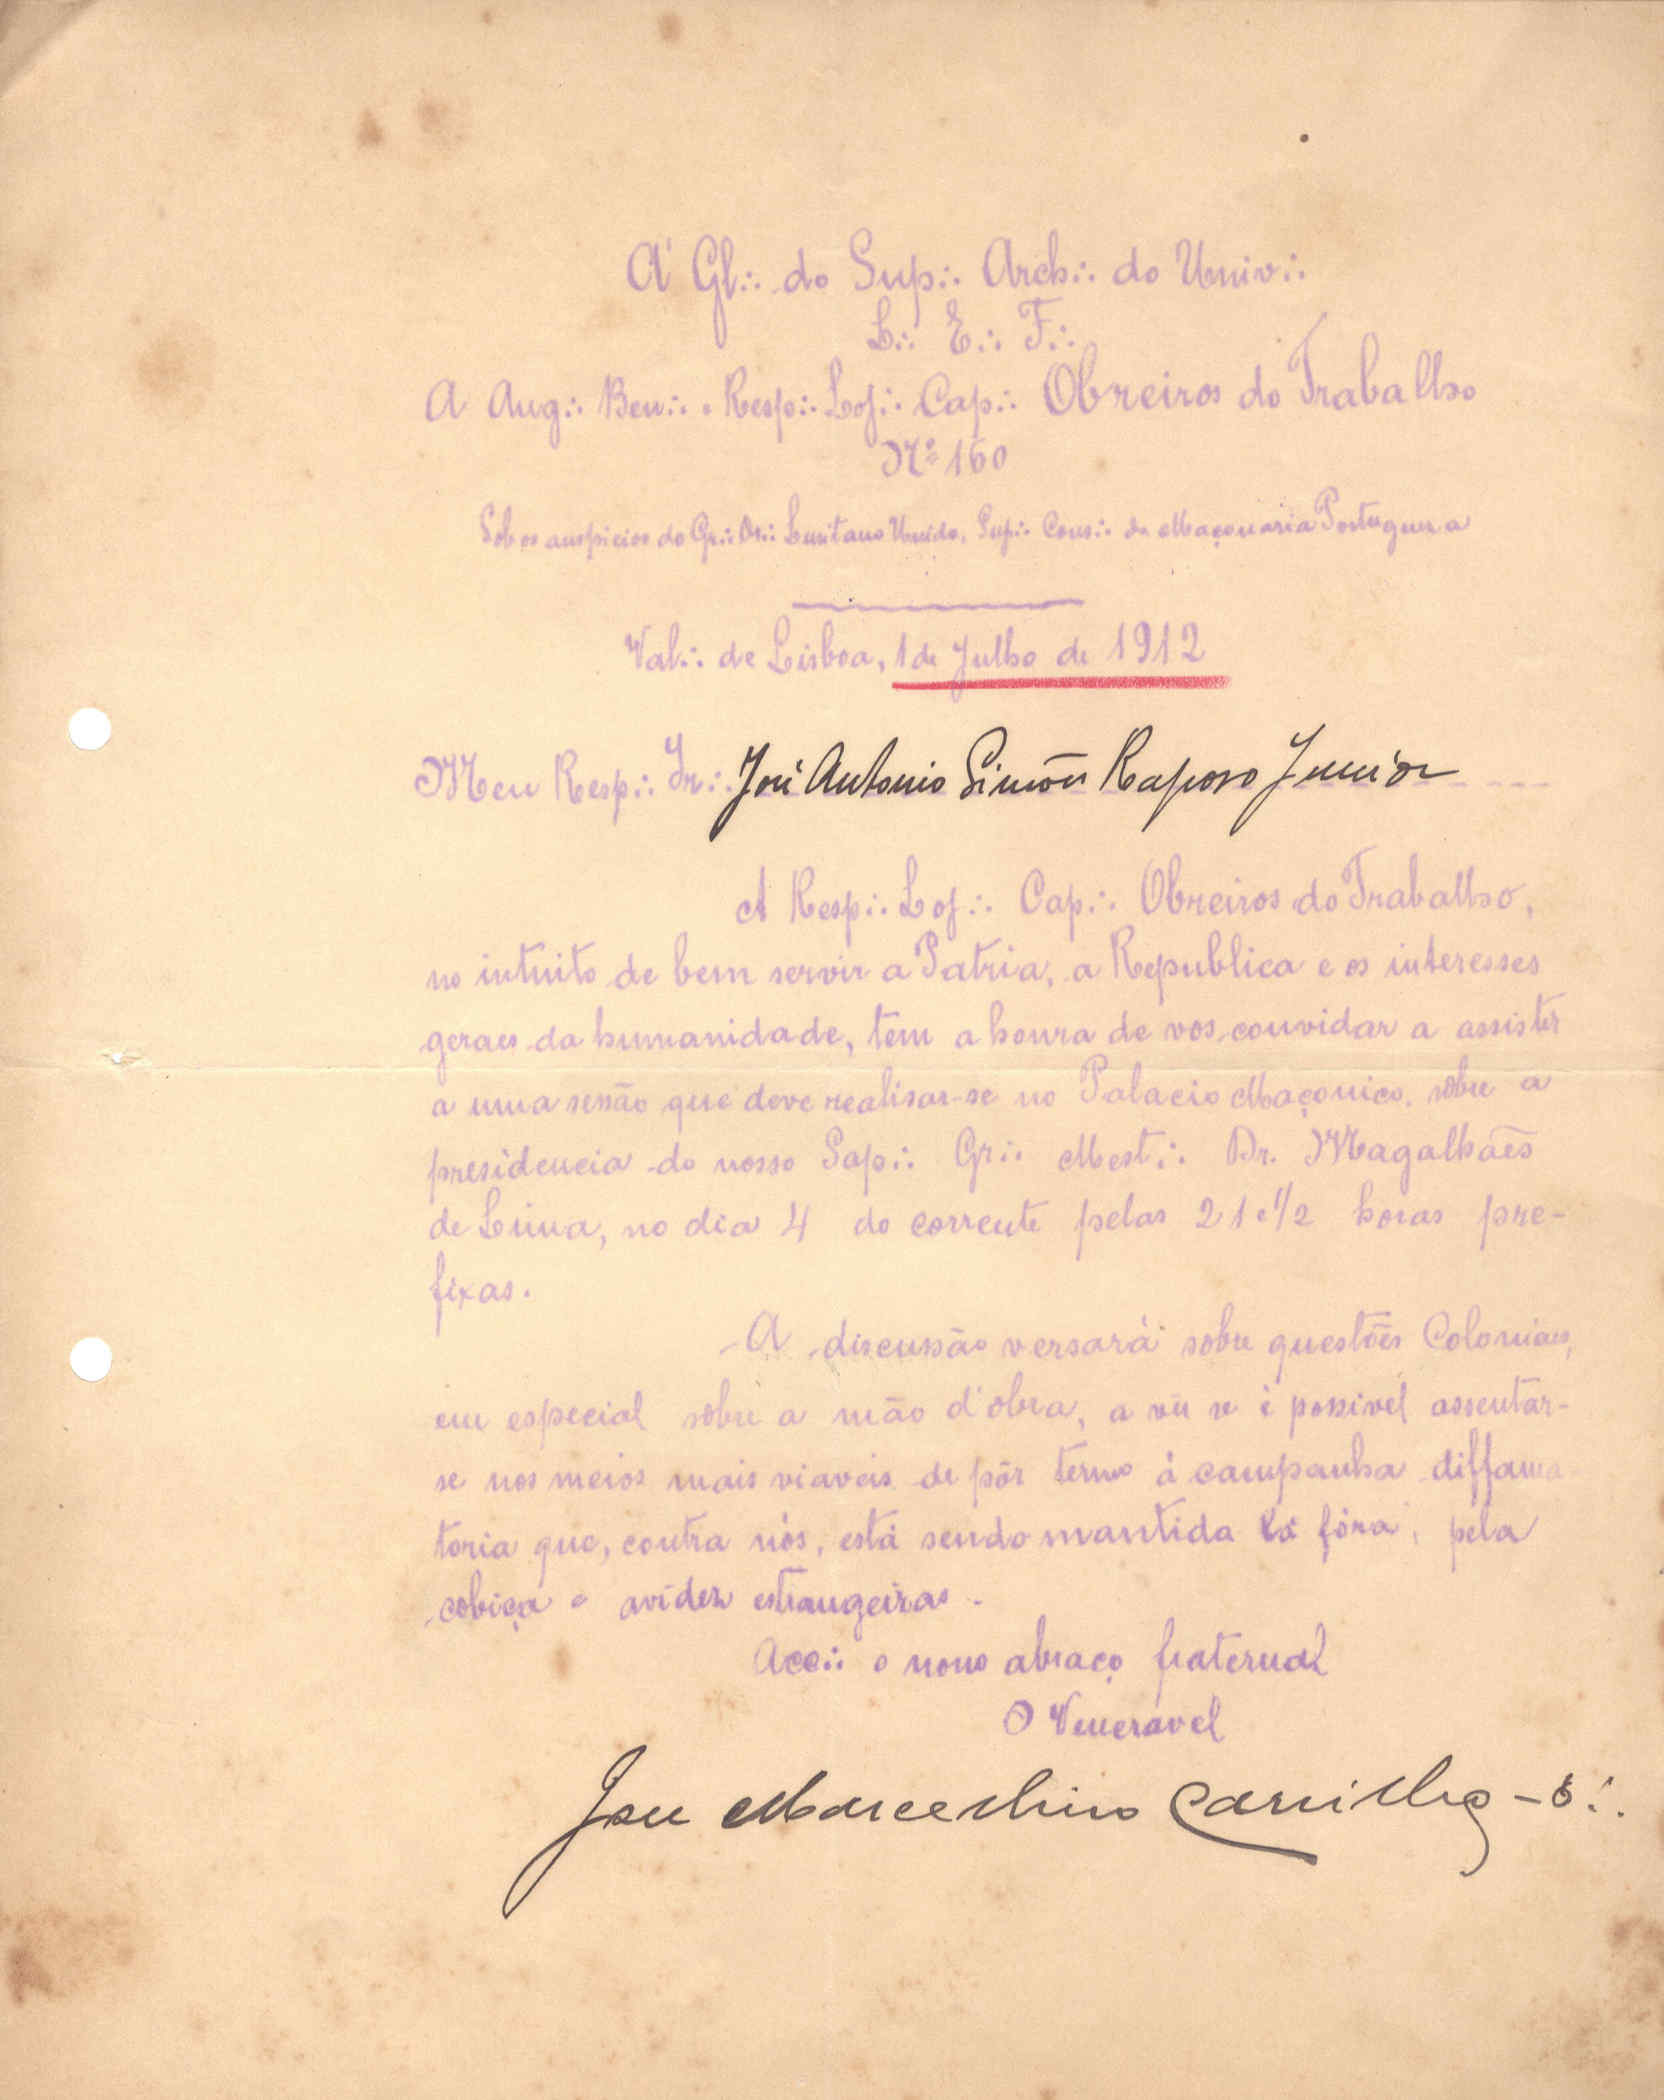 Á Gl∴ do Sup∴ Arch∴ do Univ∴
L∴ E∴ F∴
A Aug∴ Ben∴ e Resp∴ Loj∴ Cap∴ Obreiros do Trabalho
Nº 160
Sob os auspicios do Gr∴ Or∴ Lusitano Unido, Sup∴ Cons∴ da Maçonaria Portugueza
Val∴ de Lisboa, 1 de Julho de 1912
Meu Resp∴ Ir∴ José Antonio Simões Raposo Junior
A Resp∴ Loj∴ Cap∴ Obreiros do Trabalho,
no intuito de bem servir a Patria, a Republica e os interesses
geraes da humanidade, tem a honra de vos convidar a assistir
a uma sessão que deve realisar-se no Palacio Maçonico, sôbre a
presidencia do nosso Sap∴ Gr∴ Mest∴ Dr. Magalhães
de Lima, no dia 4 do corrente pelas 21 e 1/2 horas pre-
fixas.
A discussão versará sobre questões Coloniaes,
em especial sôbre a mão d'obra, a vêr se é possivel assentar-
se nos meios mais viaveis de pôr termo á campanha diffama
toria que, contra nós, está sendo mantida lá fóra, pela
cobiça e avidez estrangeiras.
Acc∴ o nosso abraço fraternal
O Veneravel
José Marcellino Carrilho